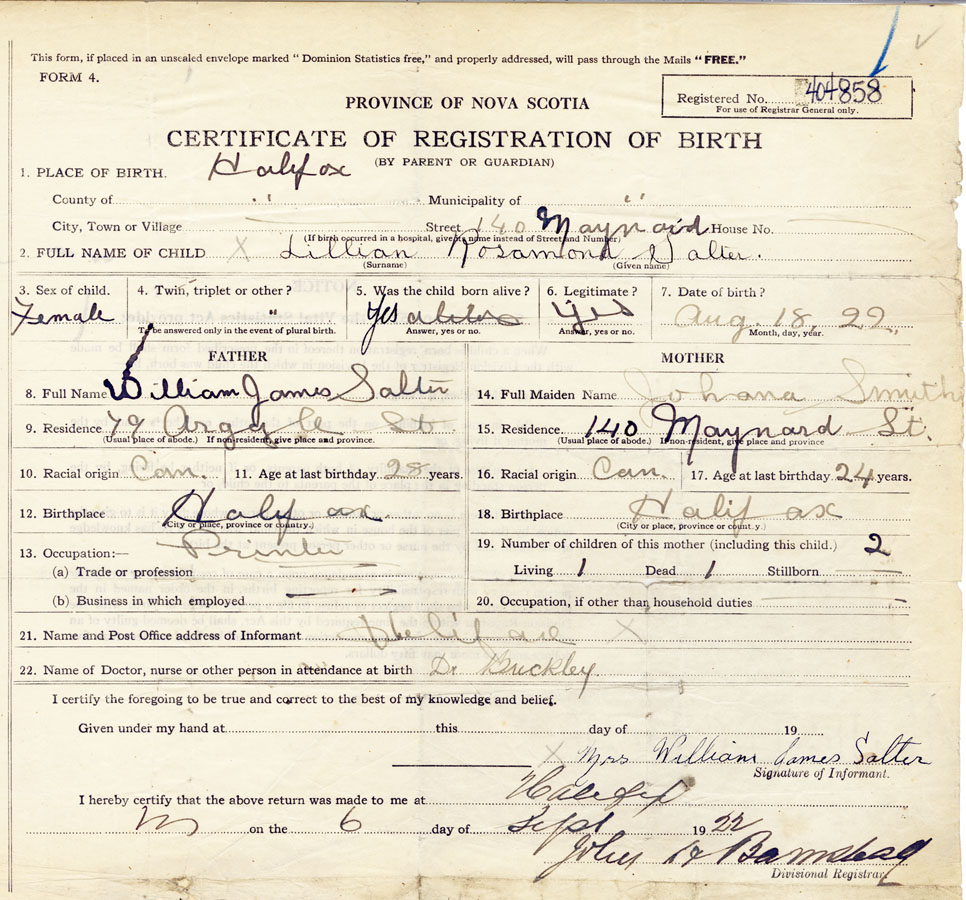 This form, if placed in an unsealed envelope marked "Dominion Statistics free," and properly addressed, will pass through the Mails "FREE."
FORM 4.
Registered No. 404858
For use of Registrar General only.
PROVINCE OF NOVA SCOTIA
CERTIFICATE OF REGISTRATION OF BIRTH
(BY PARENT OR GUARDIAN)
1. PLACE OF BIRTH. Halifax
County of " Municipality of "
City, Town or Village Street 140 Maynard House No.
(If birth occurred in a hospital, give its name instead of Street and Number)
2. FULL NAME OF CHILD X Lillian Rosamond Salter.
(Surname) (Given name)
3. Sex of child. 4. Twin, triplet or other? 5. Was the child born alive? 6. Legitimate? 7. Date of birth?
Female " Yes Yes Aug. 18, 22.
To be answered only in the event of plural birth. Answer, yes or no. Answer, yes or no. Month, day, year.
FATHER MOTHER
8. Full Name William James Salter 14. Full Maiden Name Johana Smith
9. Residence 79 Argyle St 15. Residence 140 Maynard St.
(Usual place of abode.) If non-resident, give place and province. (Usual place of abode.) If non-resident, give place and province
10. Racial origin Can. 11. Age at last birthday 28 years. 16. Racial origin Can. 17. Age at last birthday 24 years.
12. Birthplace Halifax 18. Birthplace Halifax
(City or place, province or country.) (City or place, province or country.)
13. Occupation:— Printer 19. Number of children of this mother (including this child.) 2
(a) Trade or profession Living 1 Dead 1 Stillborn —
(b) Business in which employed — 20. Occupation, if other than household duties —
21. Name and Post Office address of Informant Halifax X
22. Name of Doctor, nurse or other person in attendance at birth Dr Buckley
I certify the foregoing to be true and correct to the best of my knowledge and belief.
Given under my hand at this day of 19
X Mrs William James Salter
Signature of Informant.
I hereby certify that the above return was made to me at Halifax
on the 6 day of Sept 1922
John
Divisional Registrar.